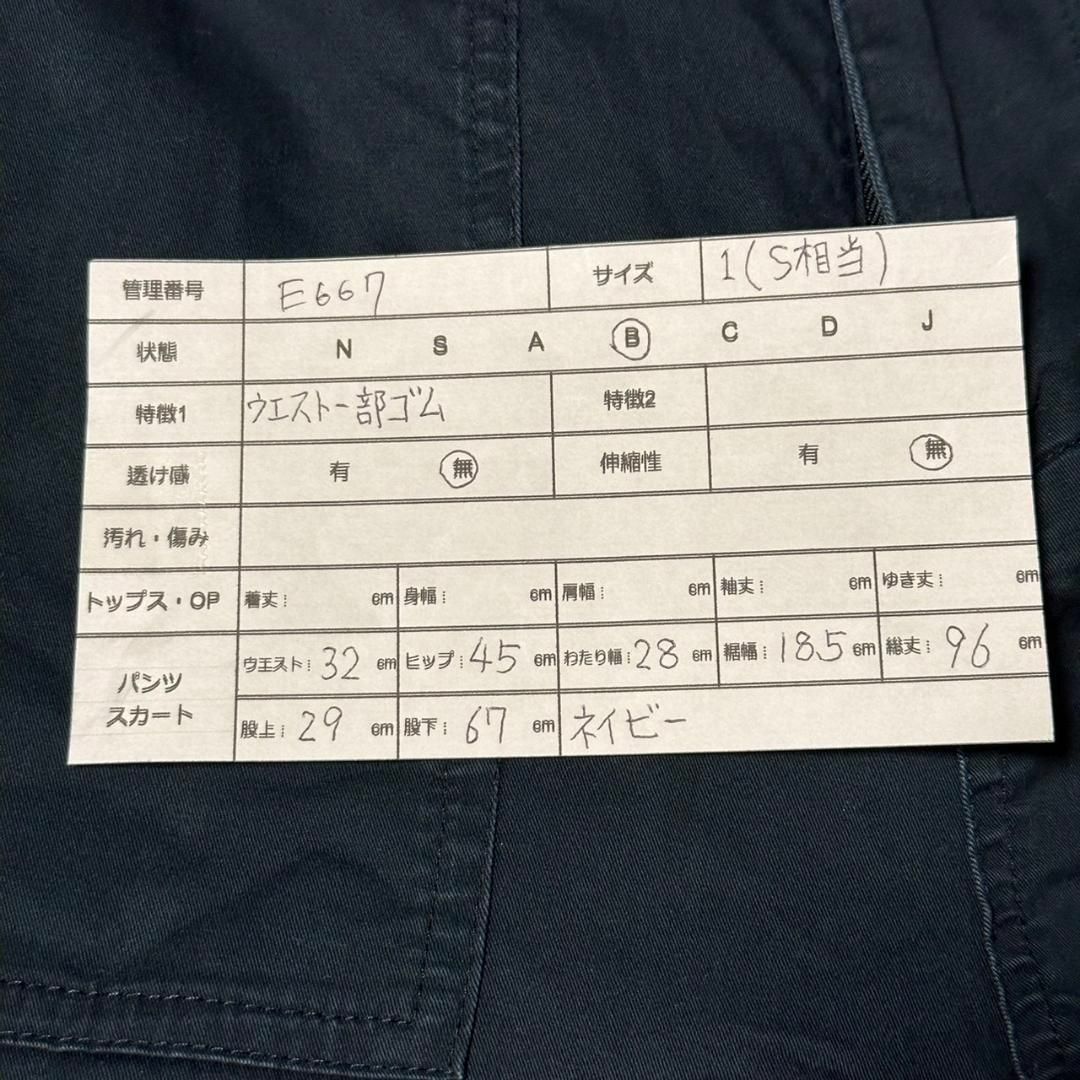 管理番号 E667 サイズ 1(S相当)
状態 N S A B C D J
特徴1 ウエスト一部ゴム 特徴2
透け感 有 無 伸縮性 有 無
汚れ・傷み
トップス・OP 着丈: cm 身幅: cm 肩幅: cm 袖丈: cm ゆき丈: cm
パンツ スカート ウエスト: 32 cm ヒップ: 45 cm わたり幅: 28 cm 裾幅: 18.5 cm 総丈: 96 cm
股上: 29 cm 股下: 67 cm ネイビー